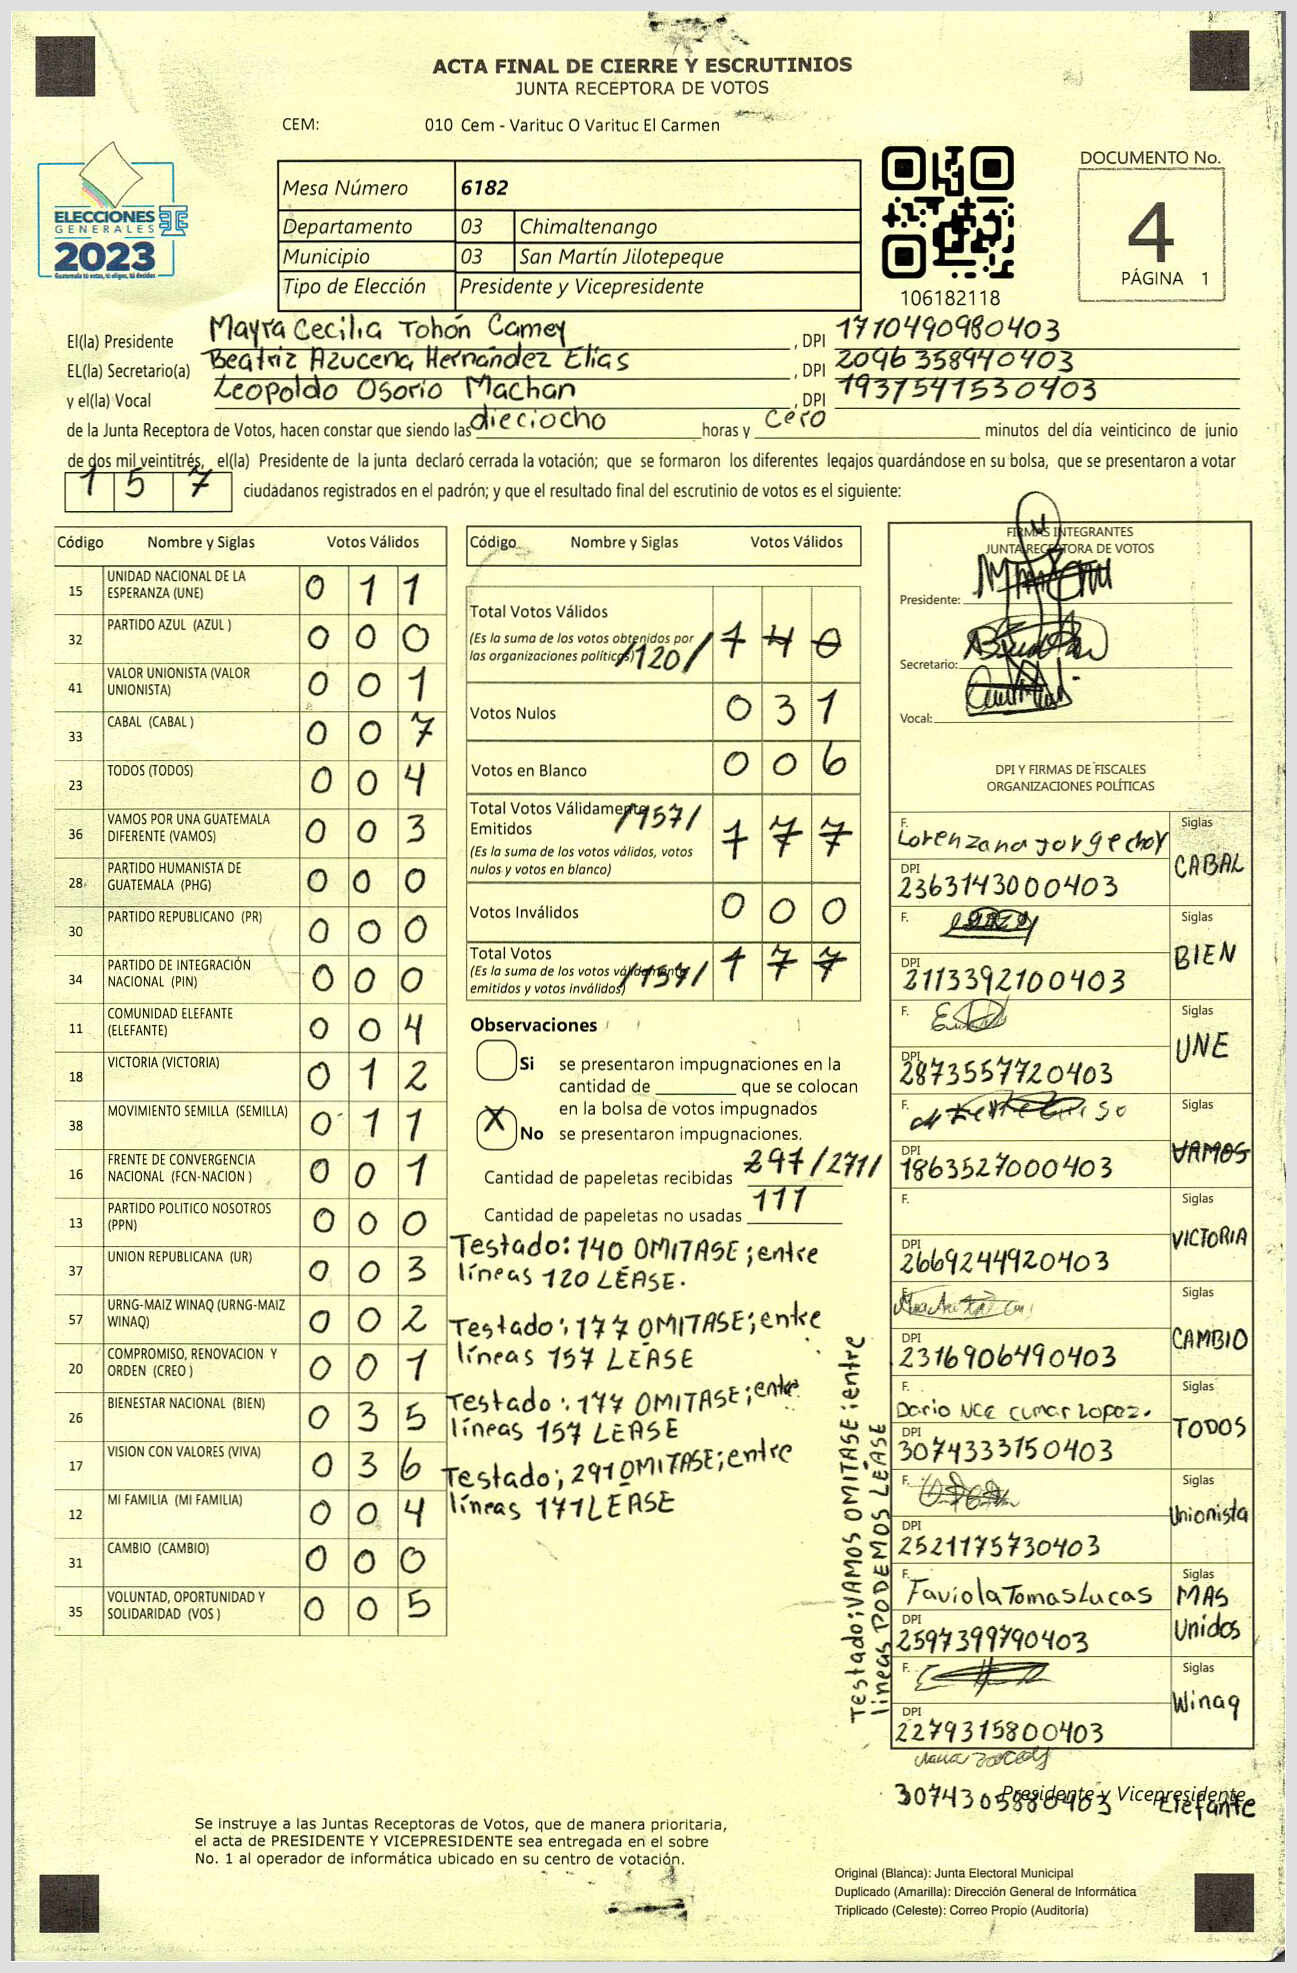 ACTA FINAL DE CIERRE Y ESCRUTINIOS
JUNTA RECEPTORA DE VOTOS
CEM: 010 Cem - Varituc O Varituc El Carmen
ELECCIONES
GENERALES
2023
Guatemala tú votas, tú eliges, tú decides
Mesa Número 6182
Departamento 03 Chimaltenango
Municipio 03 San Martín Jilotepeque
Tipo de Elección Presidente y Vicepresidente
106182118
DOCUMENTO No.
4
PÁGINA 1
El(la) Presidente Mayra Cecilia Tohón Camey , DPI 1710490980403
EL(la) Secretario(a) Beatriz Azucena Hernández Elías , DPI 2096358940403
y el(la) Vocal Leopoldo Osorio Machan , DPI 1937541530403
de la Junta Receptora de Votos, hacen constar que siendo las dieciocho horas y cero minutos del día veinticinco de junio
de dos mil veintitrés, el(la) Presidente de la junta declaró cerrada la votación; que se formaron los diferentes legajos guardándose en su bolsa, que se presentaron a votar
1 5 7 ciudadanos registrados en el padrón; y que el resultado final del escrutinio de votos es el siguiente:
Código Nombre y Siglas Votos Válidos
15 UNIDAD NACIONAL DE LA ESPERANZA (UNE) 0 1 1
32 PARTIDO AZUL (AZUL ) 0 0 0
41 VALOR UNIONISTA (VALOR UNIONISTA) 0 0 1
33 CABAL (CABAL ) 0 0 7
23 TODOS (TODOS) 0 0 4
36 VAMOS POR UNA GUATEMALA DIFERENTE (VAMOS) 0 0 3
28 PARTIDO HUMANISTA DE GUATEMALA (PHG) 0 0 0
30 PARTIDO REPUBLICANO (PR) 0 0 0
34 PARTIDO DE INTEGRACIÓN NACIONAL (PIN) 0 0 0
11 COMUNIDAD ELEFANTE (ELEFANTE) 0 0 4
18 VICTORIA (VICTORIA) 0 1 2
38 MOVIMIENTO SEMILLA (SEMILLA) 0 1 1
16 FRENTE DE CONVERGENCIA NACIONAL (FCN-NACION ) 0 0 1
13 PARTIDO POLITICO NOSOTROS (PPN) 0 0 0
37 UNION REPUBLICANA (UR) 0 0 3
57 URNG-MAIZ WINAQ (URNG-MAIZ WINAQ) 0 0 2
20 COMPROMISO, RENOVACION Y ORDEN (CREO ) 0 0 1
26 BIENESTAR NACIONAL (BIEN) 0 3 5
17 VISION CON VALORES (VIVA) 0 3 6
12 MI FAMILIA (MI FAMILIA) 0 0 4
31 CAMBIO (CAMBIO) 0 0 0
35 VOLUNTAD, OPORTUNIDAD Y SOLIDARIDAD (VOS ) 0 0 5
Código Nombre y Siglas Votos Válidos
Total Votos Válidos
(Es la suma de los votos obtenidos por
las organizaciones políticas) /120/ 1 4 0
Votos Nulos 0 3 1
Votos en Blanco 0 0 6
Total Votos Válidamente
Emitidos /157/ 1 7 7
(Es la suma de los votos válidos, votos
nulos y votos en blanco)
Votos Inválidos 0 0 0
Total Votos
(Es la suma de los votos válidamente
emitidos y votos inválidos) /157/ 1 7 7
Observaciones
Si se presentaron impugnaciones en la
cantidad de que se colocan
en la bolsa de votos impugnados
X No se presentaron impugnaciones.
Cantidad de papeletas recibidas 291 /271/
Cantidad de papeletas no usadas 111
Testado: 140 OMITASE; entre
líneas 120 LÉASE.
Testado: 177 OMITASE; entre
líneas 157 LEASE
Testado: 177 OMITASE; entre
líneas 157 LEASE
Testado; 291 OMITASE; entre
líneas 171 LEASE
Testado; VAMOS OMITASE; entre
líneas PODEMOS LÉASE
FIRMAS INTEGRANTES
JUNTA RECEPTORA DE VOTOS
Presidente:
Secretario:
Vocal:
DPI Y FIRMAS DE FISCALES
ORGANIZACIONES POLÍTICAS
F. Lorenzana Jorge choy Siglas
DPI 2363143000403 CABAL
F. Siglas
DPI 2113392100403 BIEN
F. Siglas
DPI 2873557720403 UNE
F. Siglas
DPI 1863527000403 VAMOS
F. Siglas
DPI 2669244920403 VICTORIA
F. Siglas
DPI 2316906490403 CAMBIO
F. Dario NCE cumar Lopez. Siglas
DPI 3074333150403 TODOS
F. Siglas
DPI 2521175730403 Unionista
F. Faviola Tomas Lucas Siglas
DPI 2597399790403 MAS Unidos
F. Siglas
DPI 2279315800403 Winaq
Presidente y Vicepresidente
3074305880403 Elefante
Se instruye a las Juntas Receptoras de Votos, que de manera prioritaria,
el acta de PRESIDENTE Y VICEPRESIDENTE sea entregada en el sobre
No. 1 al operador de informática ubicado en su centro de votación.
Original (Blanca): Junta Electoral Municipal
Duplicado (Amarilla): Dirección General de Informática
Triplicado (Celeste): Correo Propio (Auditoría)